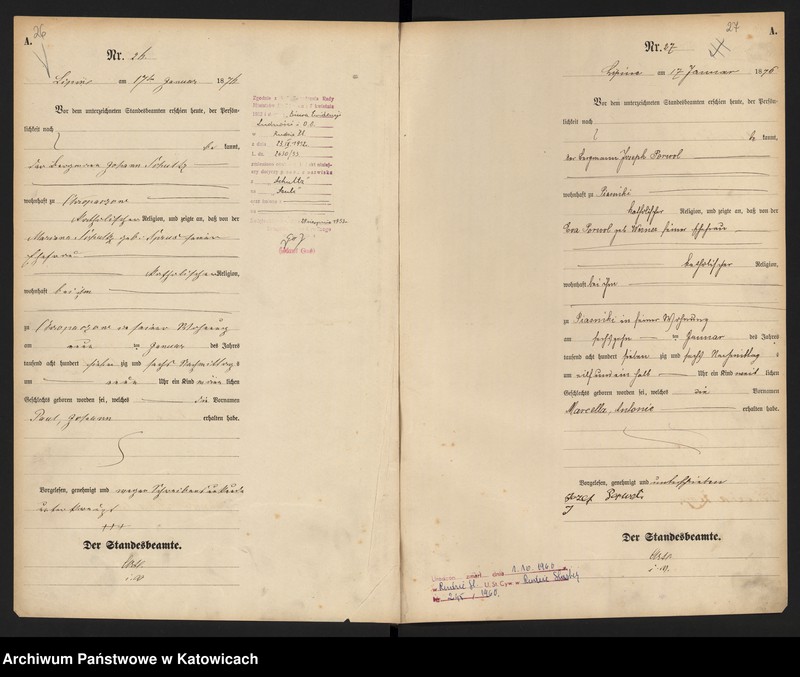 26
A.
Nr. 26
Lipine am 17ten Januar 1876
Vor dem unterzeichneten Standesbeamten erschien heute, der Persön-
lichkeit nach
be kannt,
der Bergmann Johann Schultz
wohnhaft zu Chropaczow
katholischer Religion, und zeigte an, daß von der
Marianna Schultz geb. seiner
Ehefrau
katholischer Religion,
wohnhaft bei ihm
zu Chropaczow in seiner Wohnung
am Januar des Jahres
tausend acht hundert sieben zig und sechs Nachmittags
um neun Uhr ein Kind männ lichen
Geschlechts geboren worden sei, welches die Vornamen
Paul, Johann
erhalten habe.
Vorgelesen, genehmigt und wegen Schreibensunkunde
unterkreuzt
+++
Der Standesbeamte.
i. V.
Zgodnie z Rady
1952
w Rudzie Śl.
z dnia 1952
nazwiska
z „Schultz”
na
1952
27
A.
Nr. 27
Lipine am 17 Januar 1876
Vor dem unterzeichneten Standesbeamten erschien heute, der Persön-
lichkeit nach
be kannt,
der Bergmann Joseph Porwol
wohnhaft zu Piasniki
katholischer Religion, und zeigte an, daß von der
Eva Porwol geb. seiner Ehefrau
katholischer Religion,
wohnhaft bei ihm
zu Piasniki in seiner Wohnung
am sechszehn ten Januar des Jahres
tausend acht hundert sieben zig und sechs Nachmittag s
um elf und ein halb Uhr ein Kind weib lichen
Geschlechts geboren worden sei, welches die Vornamen
Marcella, Antonie erhalten habe.
Vorgelesen, genehmigt und unterschrieben
Jozef Porwol
Der Standesbeamte.
i. V.
zmarł dnia 1.10.1960
w Rudzie Śl. U.St.Cyw. w Rudzie Śląskiej
Nr 245 / 1960.
Archiwum Państwowe w Katowicach